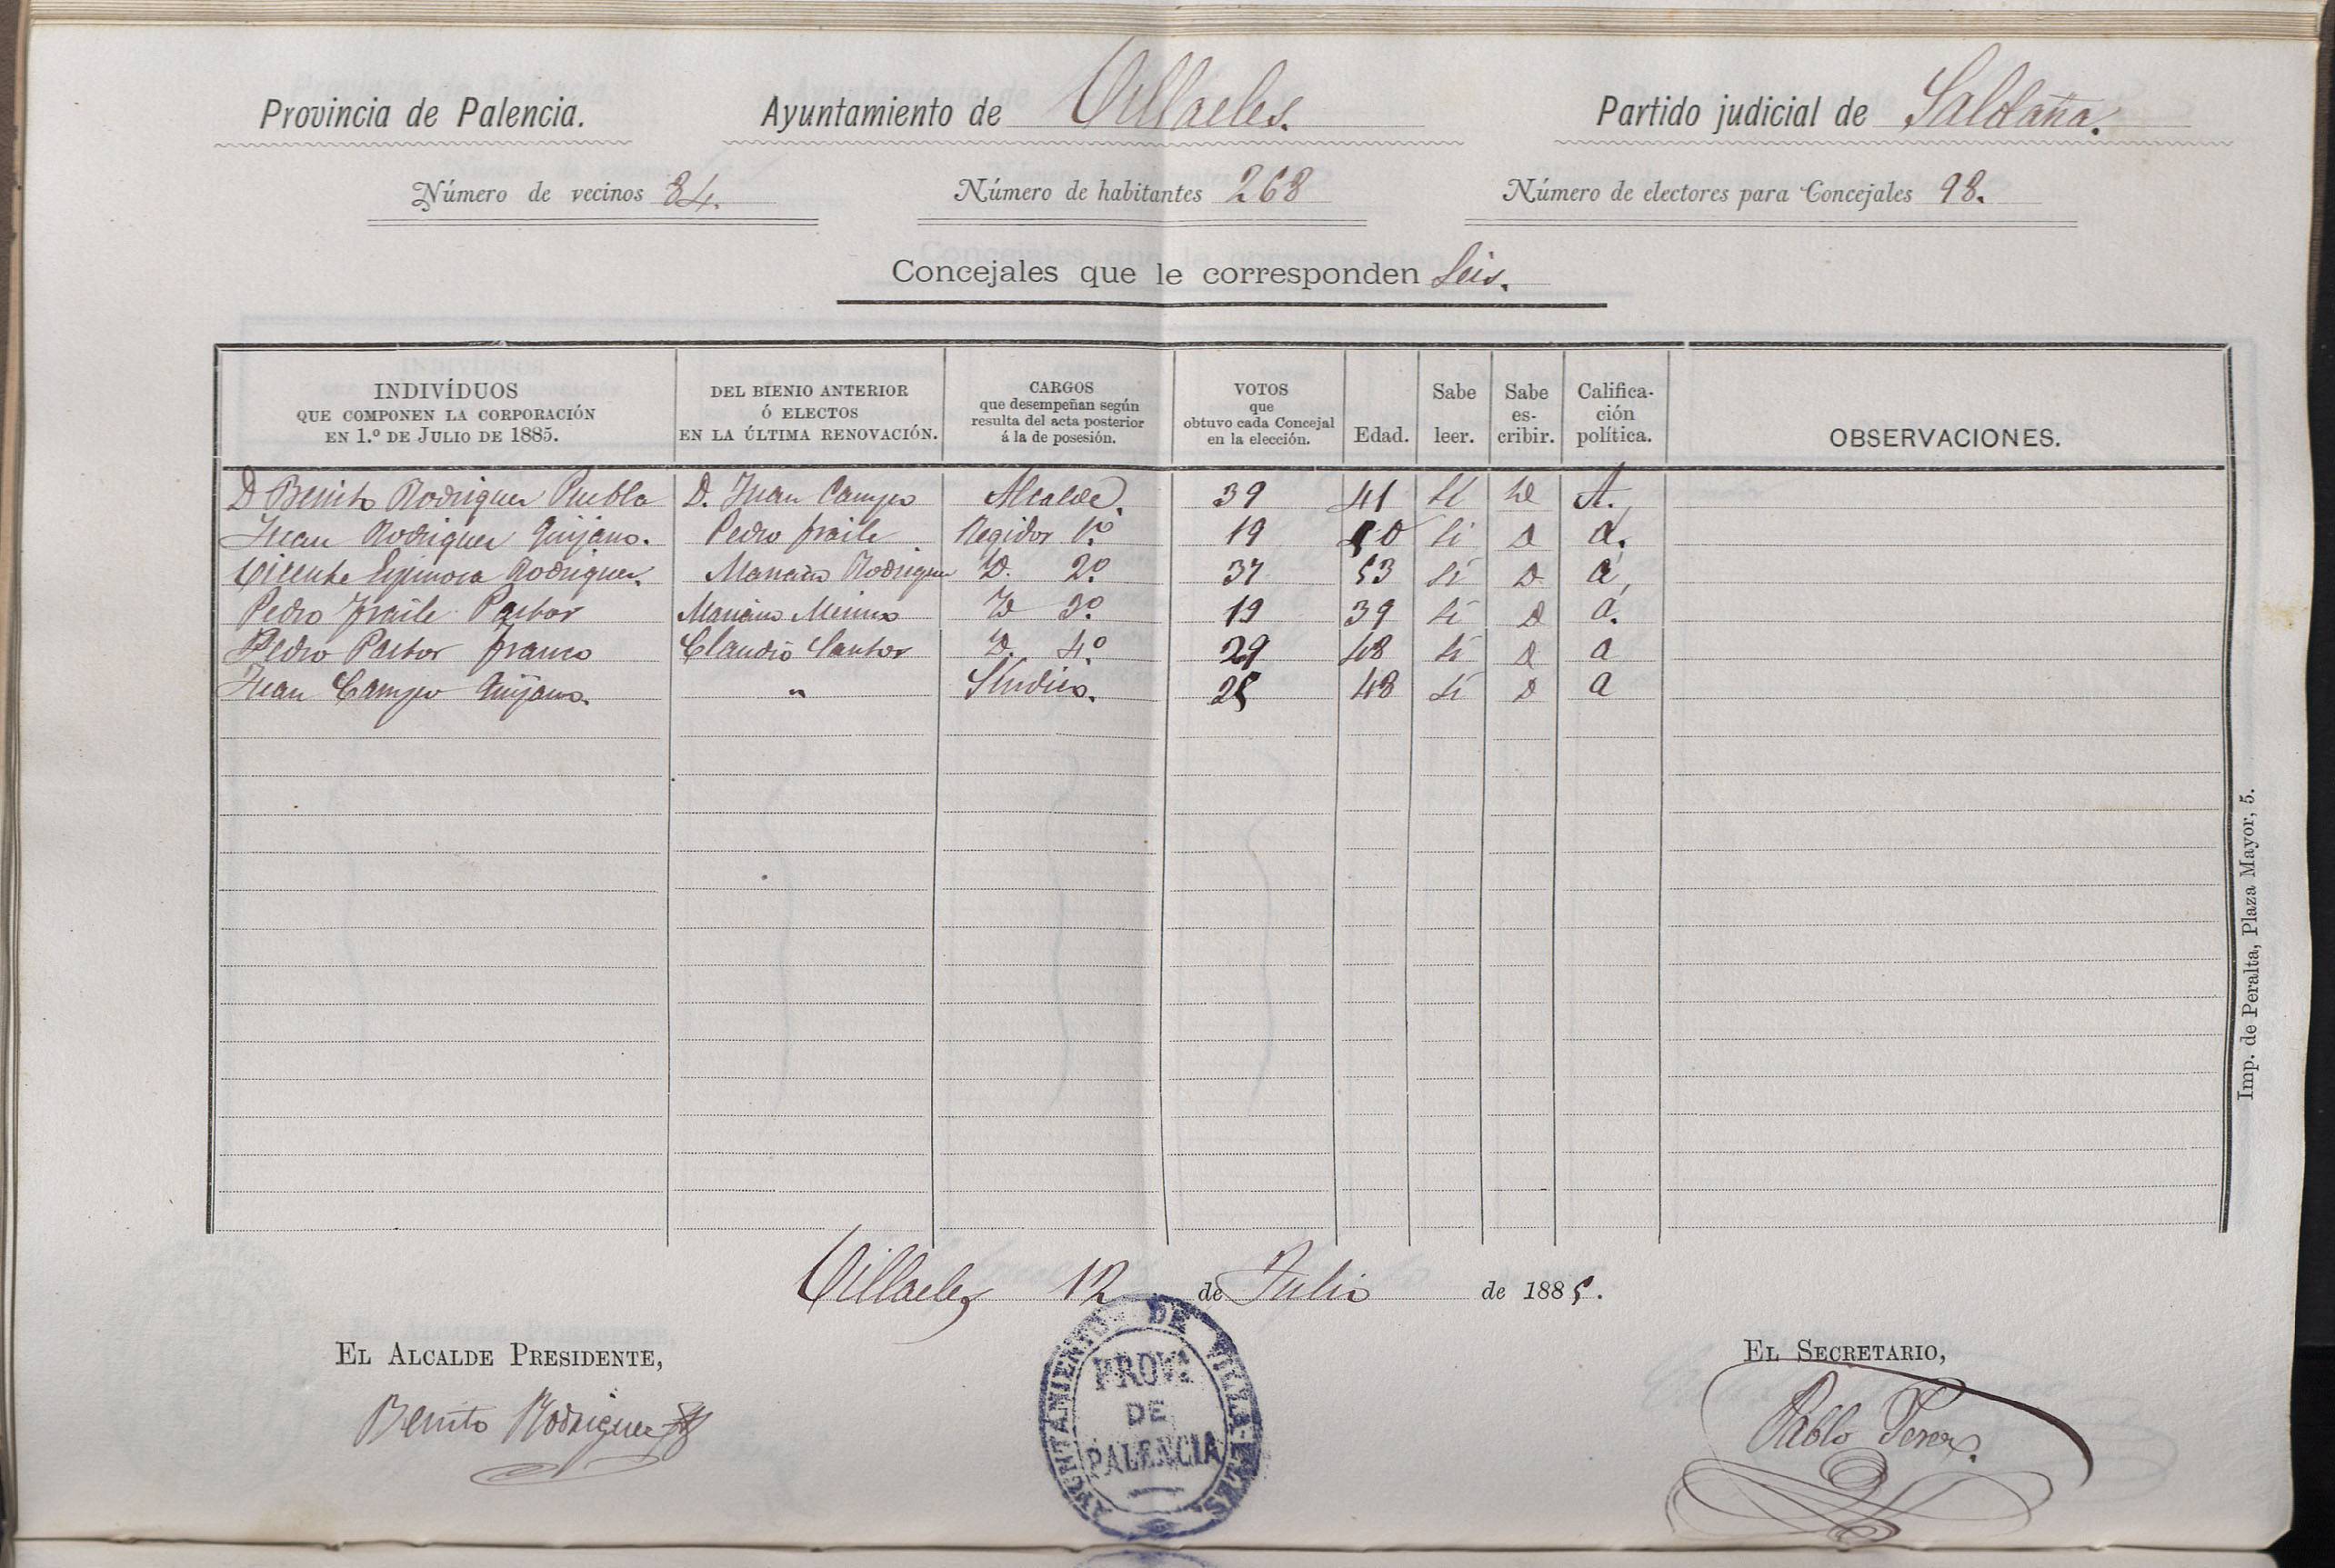 Provincia de Palencia. Ayuntamiento de Villaeles. Partido judicial de Saldaña.
Número de vecinos 84. Número de habitantes 268 Número de electores para Concejales 98.
Concejales que le corresponden Seis.
INDIVÍDUOS QUE COMPONEN LA CORPORACIÓN EN 1.º DE JULIO DE 1885.
DEL BIENIO ANTERIOR Ó ELECTOS EN LA ÚLTIMA RENOVACIÓN.
CARGOS que desempeñan según resulta del acta posterior á la de posesión.
VOTOS que obtuvo cada Concejal en la elección.
Edad.
Sabe leer.
Sabe es-cribir.
Califica-ción política.
OBSERVACIONES.
D Benito Rodriguez Puebla D. Juan Campo Alcalde. 39 41 si id A.
Juan Rodriguez Quijano. Pedro fraile Regidor 1º 19 50 si a.
Vicente Espinosa Rodriguez. Mariano Rodriguez Id. 2º 37 53 si a
Pedro fraile Pastor Mariano Merino Id 3º 19 39 si a.
Pedro Pastor franco Claudio Santos Id. 4º 29 48 si a
Juan Campo Quijano. " Síndico. 25 48 si a
Villaeles 12 de Julio de 1885.
EL ALCALDE PRESIDENTE, EL SECRETARIO,
Benito Rodriguez Pablo Perez.
AYUNTAMIENTO DE VILLA-ELES
PROVA
DE
PALENCIA
Imp. de Peralta, Plaza Mayor, 5.